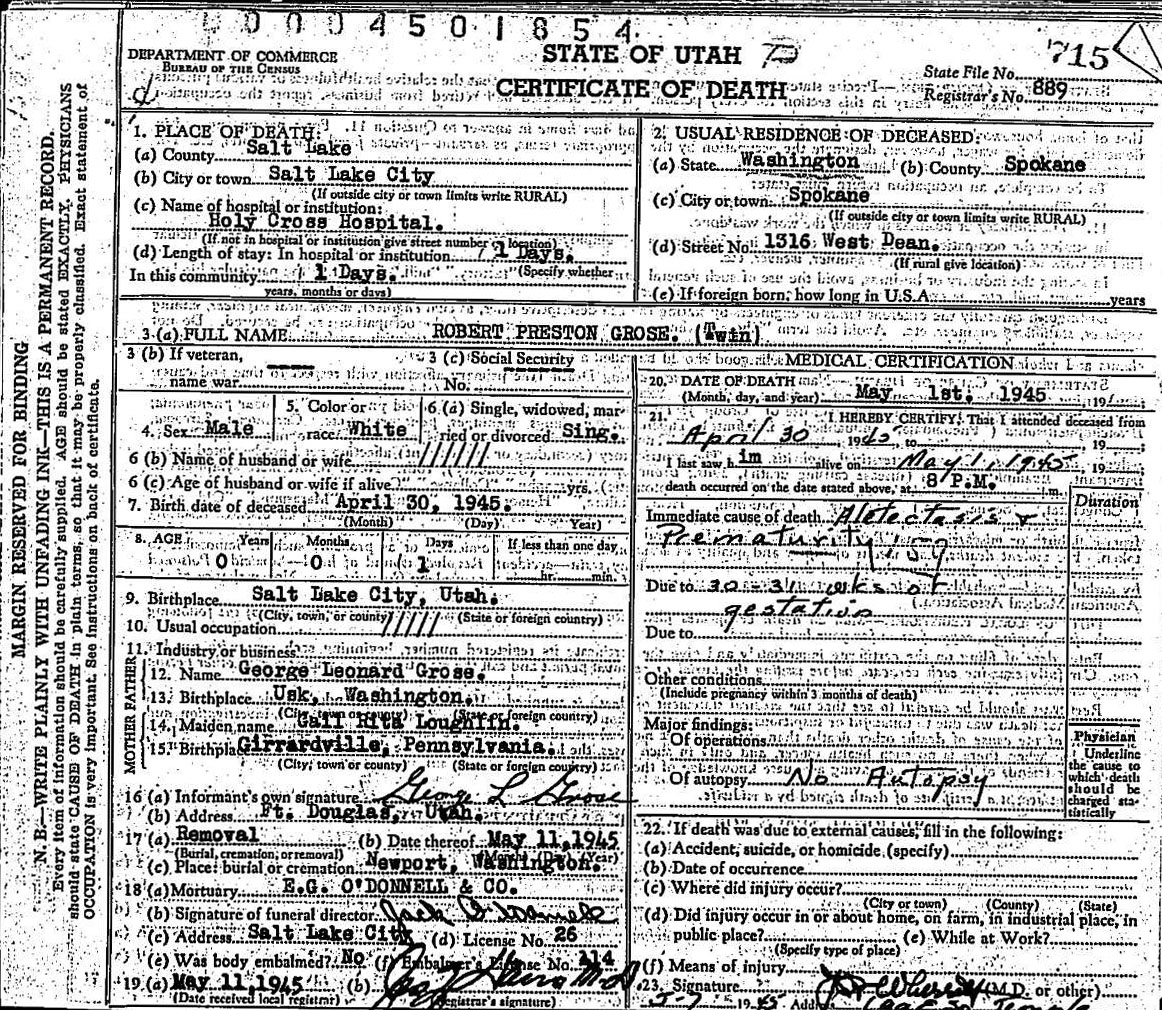 0004501854
DEPARTMENT OF COMMERCE
BUREAU OF THE CENSUS
STATE OF UTAH
CERTIFICATE OF DEATH
715
State File No.
Registrar's No. 889
MARGIN RESERVED FOR BINDING
N. B.—WRITE PLAINLY WITH UNFADING INK—THIS IS A PERMANENT RECORD.
Every item of information should be carefully supplied. AGE should be stated EXACTLY. PHYSICIANS
should state CAUSE OF DEATH in plain terms, so that it may be properly classified. Exact statement of
OCCUPATION is very important. See instructions on back of certificate.
1. PLACE OF DEATH:
(a) County Salt Lake
(b) City or town Salt Lake City
(If outside city or town limits write RURAL)
(c) Name of hospital or institution:
Holy Cross Hospital.
(If not in hospital or institution give street number location)
(d) Length of stay: In hospital or institution 1 Days.
(Specify whether
In this community 1 Days.
years, months or days)
2. USUAL RESIDENCE OF DECEASED:
(a) State Washington (b) County Spokane
(c) City or town Spokane
(If outside city or town limits write RURAL)
(d) Street No. 1316 West Dean.
(If rural give location)
(e) If foreign born, how long in U.S.A. years
3 (a) FULL NAME ROBERT PRESTON GROSE. (Twin)
3 (b) If veteran,
name war
3 (c) Social Security
No.
4. Sex Male
5. Color or
race White
6 (a) Single, widowed, mar-
ried or divorced Sing.
6 (b) Name of husband or wife //////
6 (c) Age of husband or wife if alive yrs.
7. Birth date of deceased April 30, 1945.
(Month) (Day) Year)
8. AGE Years Months Days If less than one day
0 0 1 hr. min.
9. Birthplace Salt Lake City, Utah.
(City, town, or county) (State or foreign country)
10. Usual occupation /////
11. Industry or business
FATHER
12. Name George Leonard Grose.
13. Birthplace Usk, Washington.
(City, town or county) (State or foreign country)
MOTHER
14. Maiden name Gail Rita Loughlin.
15. Birthplace Girrardville, Pennsylvania.
(City, town or county) (State or foreign country)
16 (a) Informant's own signature George L Grose
(b) Address Ft. Douglas, Utah.
17 (a) Removal (b) Date thereof May 11, 1945
(Burial, cremation, or removal) (Month) (Day) (Year)
(c) Place: burial or cremation Newport, Washington.
18 (a) Mortuary E.G. O'DONNELL & CO.
(b) Signature of funeral director Jack O'Donnell
(c) Address Salt Lake City (d) License No. 26
(e) Was body embalmed? No (f) Embalmer's License No. 114
19. (a) May 11, 1945 (b)
(Date received local registrar) Registrar's signature)
MEDICAL CERTIFICATION
20. DATE OF DEATH
(Month, day, and year) May 1st. 1945 19
21. I HEREBY CERTIFY, That I attended deceased from
April 30 1945 to 19
I last saw h im alive on May 1, 1945, 19
death occurred on the date stated above, at 8 P.M. m.
Duration
Immediate cause of death Atelectasis &
Prematurity 159
Due to 30-31 wks of
gestation
Due to
Other conditions
(Include pregnancy within 3 months of death)
Major findings:
Of operations
Of autopsy No Autopsy
Physician
Underline
the cause to
which death
should be
charged sta-
tistically
22. If death was due to external causes, fill in the following:
(a) Accident, suicide, or homicide (specify)
(b) Date of occurrence
(c) Where did injury occur?
(City or town) (County) (State)
(d) Did injury occur in or about home, on farm, in industrial place, in
public place? (e) While at Work?
(Specify type of place)
(f) Means of injury
23. Signature (M.D. or other)
5-7 1945 Address Temple